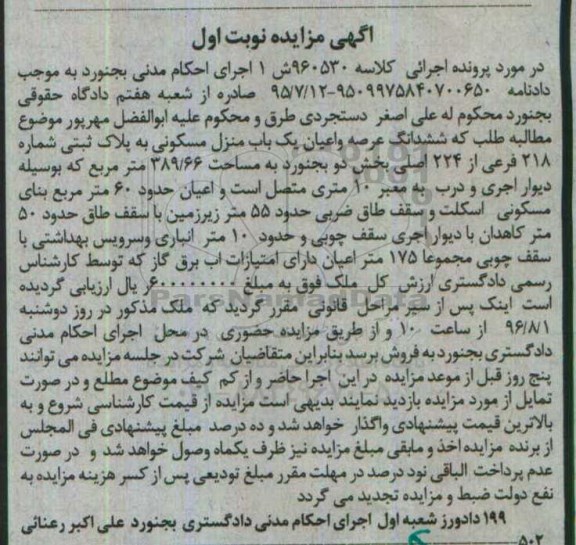 آگهی مزایده نوبت اول
در مورد پرونده اجرائی کلاسه ۹۶۰۵۳۰ش ۱ اجرای احکام مدنی بجنورد به موجب
دادنامه ۹۵۰۹۹۷۵۸۴۰۷۰۰۶۵۰-۹۵/۷/۱۲ صادره از شعبه هفتم دادگاه حقوقی
بجنورد محکوم له علی اصغر دستجردی طرق و محکوم علیه ابوالفضل مهرپور موضوع
مطالبه طلب که ششدانگ عرصه واعیان یک باب منزل مسکونی به پلاک ثبتی شماره
۲۱۸ فرعی از ۲۲۴ اصلی بخش دو بجنورد به مساحت ۳۸۹/۶۶ متر مربع که بوسیله
دیوار اجری و درب به معبر ۱۰ متری متصل است و اعیان حدود ۶۰ متر مربع بنای
مسکونی اسکلت و سقف طاق ضربی حدود ۵۵ متر زیرزمین با سقف طاق حدود ۵۰
متر کاهدان با دیوار اجری سقف چوبی و حدود ۱۰ متر انباری وسرویس بهداشتی با
سقف چوبی مجموعا ۱۷۵ متر اعیان دارای امتیازات اب برق گاز که توسط کارشناس
رسمی دادگستری ارزش کل ملک فوق به مبلغ ریال ارزیابی گردیده
است اینک پس از سیر مراحل قانونی مقرر گردید که ملک مذکور در روز دوشنبه
۹۶/۸/۱ از ساعت ۱۰ و از طریق مزایده حضوری در محل اجرای احکام مدنی
دادگستری بجنورد به فروش برسد بنابراین متقاضیان شرکت در جلسه مزایده می توانند
پنج روز قبل از موعد مزایده در این اجرا حاضر و از کم کیف موضوع مطلع و در صورت
تمایل از مورد مزایده بازدید نمایند بدیهی است مزایده از قیمت کارشناسی شروع و به
بالاترین قیمت پیشنهادی واگذار خواهد شد و ده درصد مبلغ پیشنهادی فی المجلس
از برنده مزایده اخذ و مابقی مبلغ مزایده نیز ظرف یکماه وصول خواهد شد و در صورت
عدم پرداخت الباقی نود درصد در مهلت مقرر مبلغ تودیعی پس از کسر هزینه مزایده به
نفع دولت ضبط و مزایده تجدید می گردد
۱۹۹ دادورز شعبه اول اجرای احکام مدنی دادگستری بجنورد علی اکبر رعنائی
۵۰۲
ParsNamadData